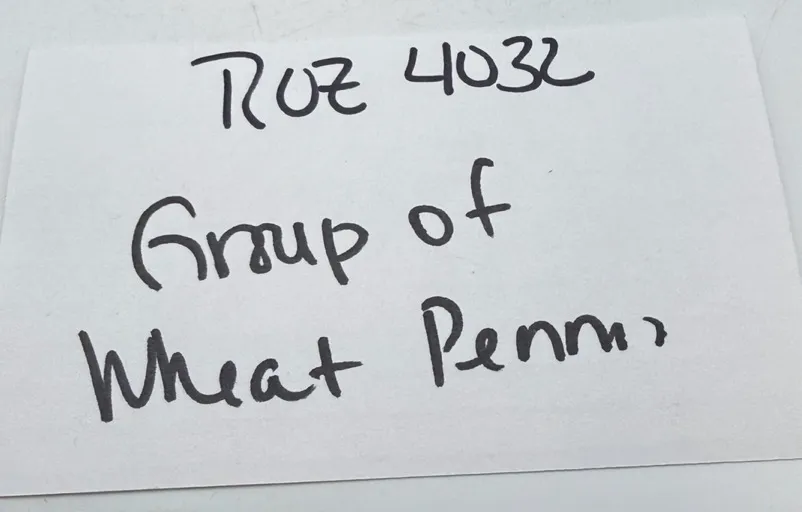 ROZ 4032
Group of
Wheat Pennis